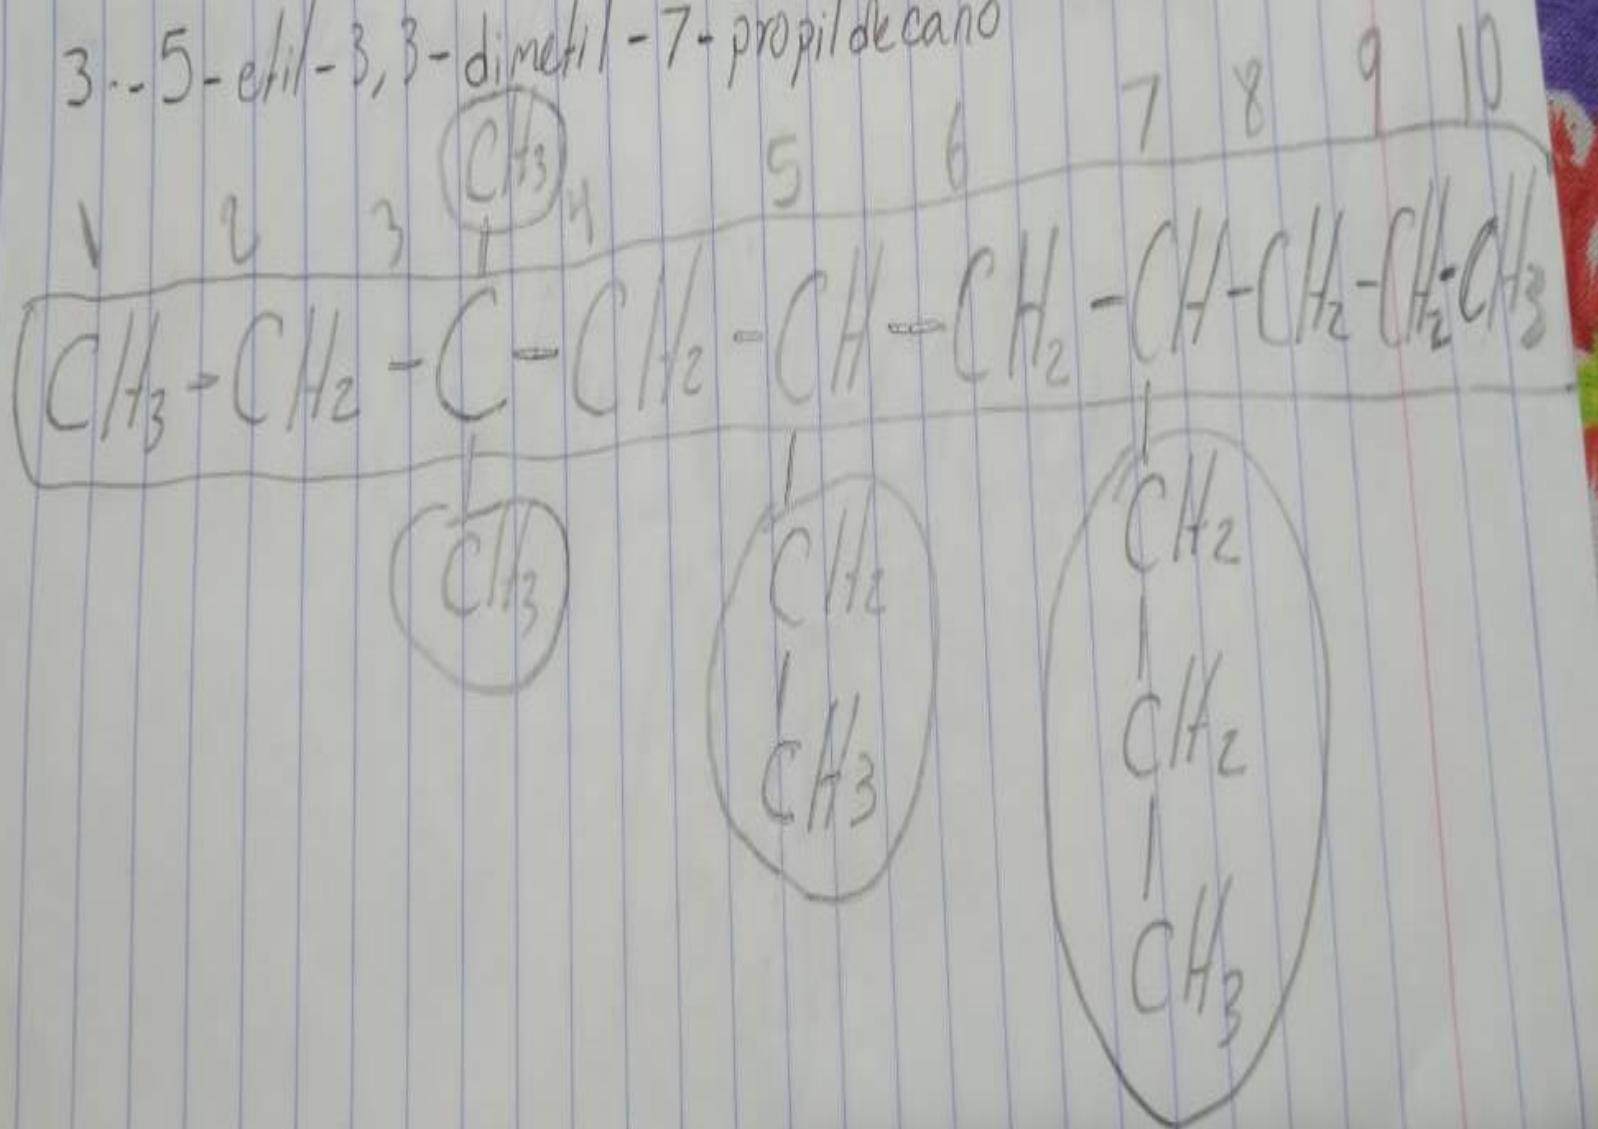 3.. 5-etil-3,3-dimetil-7-propildecano
CH3
1 2 3 4 5 6 7 8 9 10
CH3-CH2-C-CH2-CH-CH2-CH-CH2-CH2-CH3
CH3 CH2 CH2
CH3 CH2
CH3